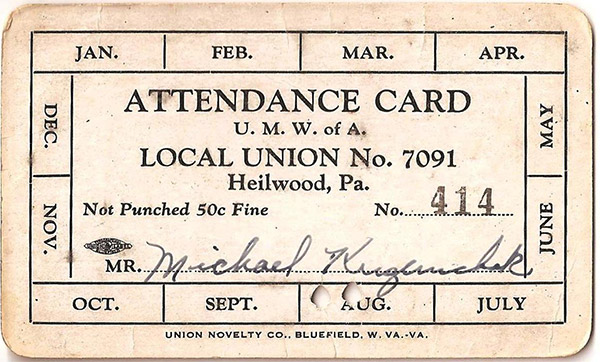 JAN. FEB. MAR. APR.
DEC. MAY
ATTENDANCE CARD
U. M. W. of A.
LOCAL UNION No. 7091
Heilwood, Pa.
NOV. JUNE
Not Punched 50c Fine No. 414
MR. Michael
OCT. SEPT. AUG. JULY
UNION NOVELTY CO., BLUEFIELD, W. VA.-VA.